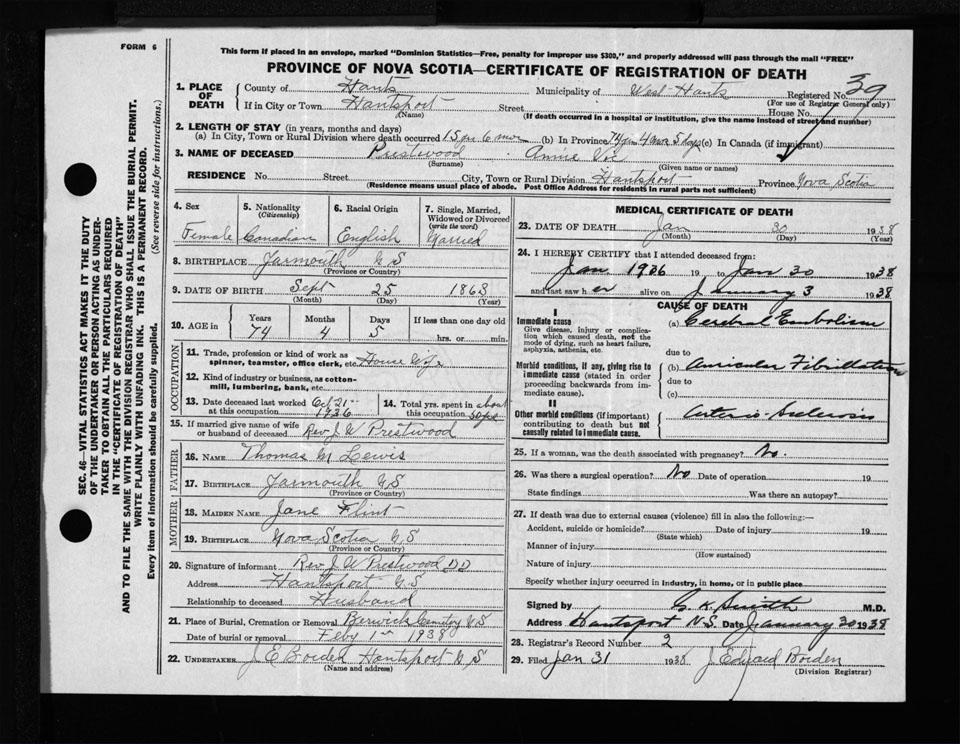 FORM 6
This form if placed in an envelope, marked "Dominion Statistics—Free, penalty for improper use $300," and properly addressed will pass through the mail "FREE"
PROVINCE OF NOVA SCOTIA—CERTIFICATE OF REGISTRATION OF DEATH
SEC. 46—VITAL STATISTICS ACT MAKES IT THE DUTY
OF THE UNDERTAKER OR PERSON ACTING AS UNDER-
TAKER TO OBTAIN ALL THE PARTICULARS REQUIRED
IN THE "CERTIFICATE OF REGISTRATION OF DEATH"
AND TO FILE THE SAME WITH THE DIVISION REGISTRAR WHO SHALL ISSUE THE BURIAL PERMIT.
WRITE PLAINLY WITH UNFADING INK. THIS IS A PERMANENT RECORD.
Every item of information should be carefully supplied. (See reverse side for instructions.)
1. PLACE OF DEATH
County of Hants Municipality of West Hants Registered No. 39
(For use of Registrar General only)
If in City or Town Hantsport Street House No.
(Name) (If death occurred in a hospital or institution, give the name instead of street and number)
2. LENGTH OF STAY (in years, months and days)
(a) In City, Town or Rural Division where death occurred 15 yrs 6 mos (b) In Province 74 yrs 4 mos 5 days (c) In Canada (if immigrant)
3. NAME OF DECEASED Prestwood Annie
(Surname) (Given name or names)
RESIDENCE No. Street City, Town or Rural Division Hantsport Province Nova Scotia
(Residence means usual place of abode. Post Office Address for residents in rural parts not sufficient)
4. Sex
Female
5. Nationality
(Citizenship)
Canadian
6. Racial Origin
English
7. Single, Married,
Widowed or Divorced
(write the word)
Married
8. BIRTHPLACE Yarmouth N S
(Province or Country)
9. DATE OF BIRTH Sept 25 1863
(Month) (Day) (Year)
10. AGE in
Years Months Days If less than one day old
74 4 5 hrs. or min.
OCCUPATION
11. Trade, profession or kind of work as
spinner, teamster, office clerk, etc. House Wife
12. Kind of industry or business, as cotton-
mill, lumbering, bank, etc.
13. Date deceased last worked Oct 21
at this occupation 1936
14. Total yrs. spent in about
this occupation 50 yrs
15. If married give name of wife
or husband of deceased Rev J. W Prestwood
FATHER
16. NAME Thomas M Lewis
17. BIRTHPLACE Yarmouth N S
(Province or Country)
MOTHER
18. MAIDEN NAME Jane Flint
19. BIRTHPLACE Nova Scotia N.S
(Province or Country)
20. Signature of informant Rev J. W Prestwood D D
Address Hantsport N S
Relationship to deceased Husband
21. Place of Burial, Cremation or Removal Berwick Cemetery N S
Date of burial or removal Feby 1st 1938
22. UNDERTAKER J E Borden Hantsport N S
(Name and address)
MEDICAL CERTIFICATE OF DEATH
23. DATE OF DEATH Jan 30 1938
(Month) (Day) (Year)
24. I HEREBY CERTIFY that I attended deceased from:
Jan 1936 19 to Jan 30 1938
and last saw h er alive on January 3 1938
CAUSE OF DEATH
I
Immediate cause
Give disease, injury or complica-
tion which caused death, not the
mode of dying, such as heart failure,
asphyxia, asthenia, etc.
(a) Cerebral Embolism
due to
Morbid conditions, if any, giving rise to
immediate cause (stated in order
proceeding backwards from im-
mediate cause).
(b) Auricular Fibrillation
due to
(c)
II
Other morbid conditions (if important)
contributing to death but not
causally related to immediate cause.
Arterio-Sclerosis
25. If a woman, was the death associated with pregnancy? No.
26. Was there a surgical operation? No Date of operation 19
State findings Was there an autopsy?
27. If death was due to external causes (violence) fill in also the following:—
Accident, suicide or homicide? Date of injury 19
(State which)
Manner of injury
(How sustained)
Nature of injury
Specify whether injury occurred in industry, in home, or in public place
Signed by G. K. Smith M.D.
Address Hantsport N.S. Date January 30 1938
28. Registrar's Record Number 2
29. Filed Jan 31 1938 J Edward Borden
(Division Registrar)